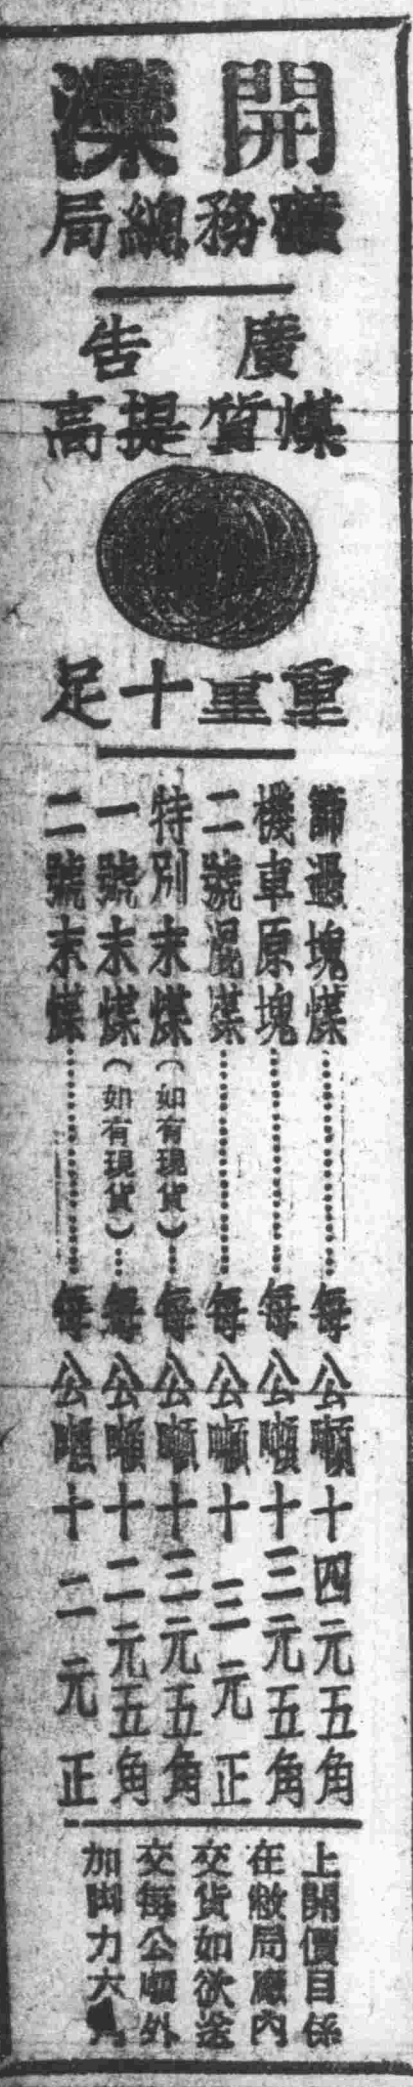 開灤
礦務總局
廣告
煤質提高
重量十足
篩過塊煤⋯⋯⋯⋯每公噸十四元五角
機車原塊⋯⋯⋯⋯每公噸十三元五角
二號混煤⋯⋯⋯⋯每公噸十三元正
特別末煤(如有現貨)⋯每公噸十三元五角
一號末煤(如有現貨)⋯每公噸十二元五角
二號末煤⋯⋯⋯⋯每公噸十二元正
上開價目係
在敝局廠內
交貨如欲送
交每公噸外
加脚力六角